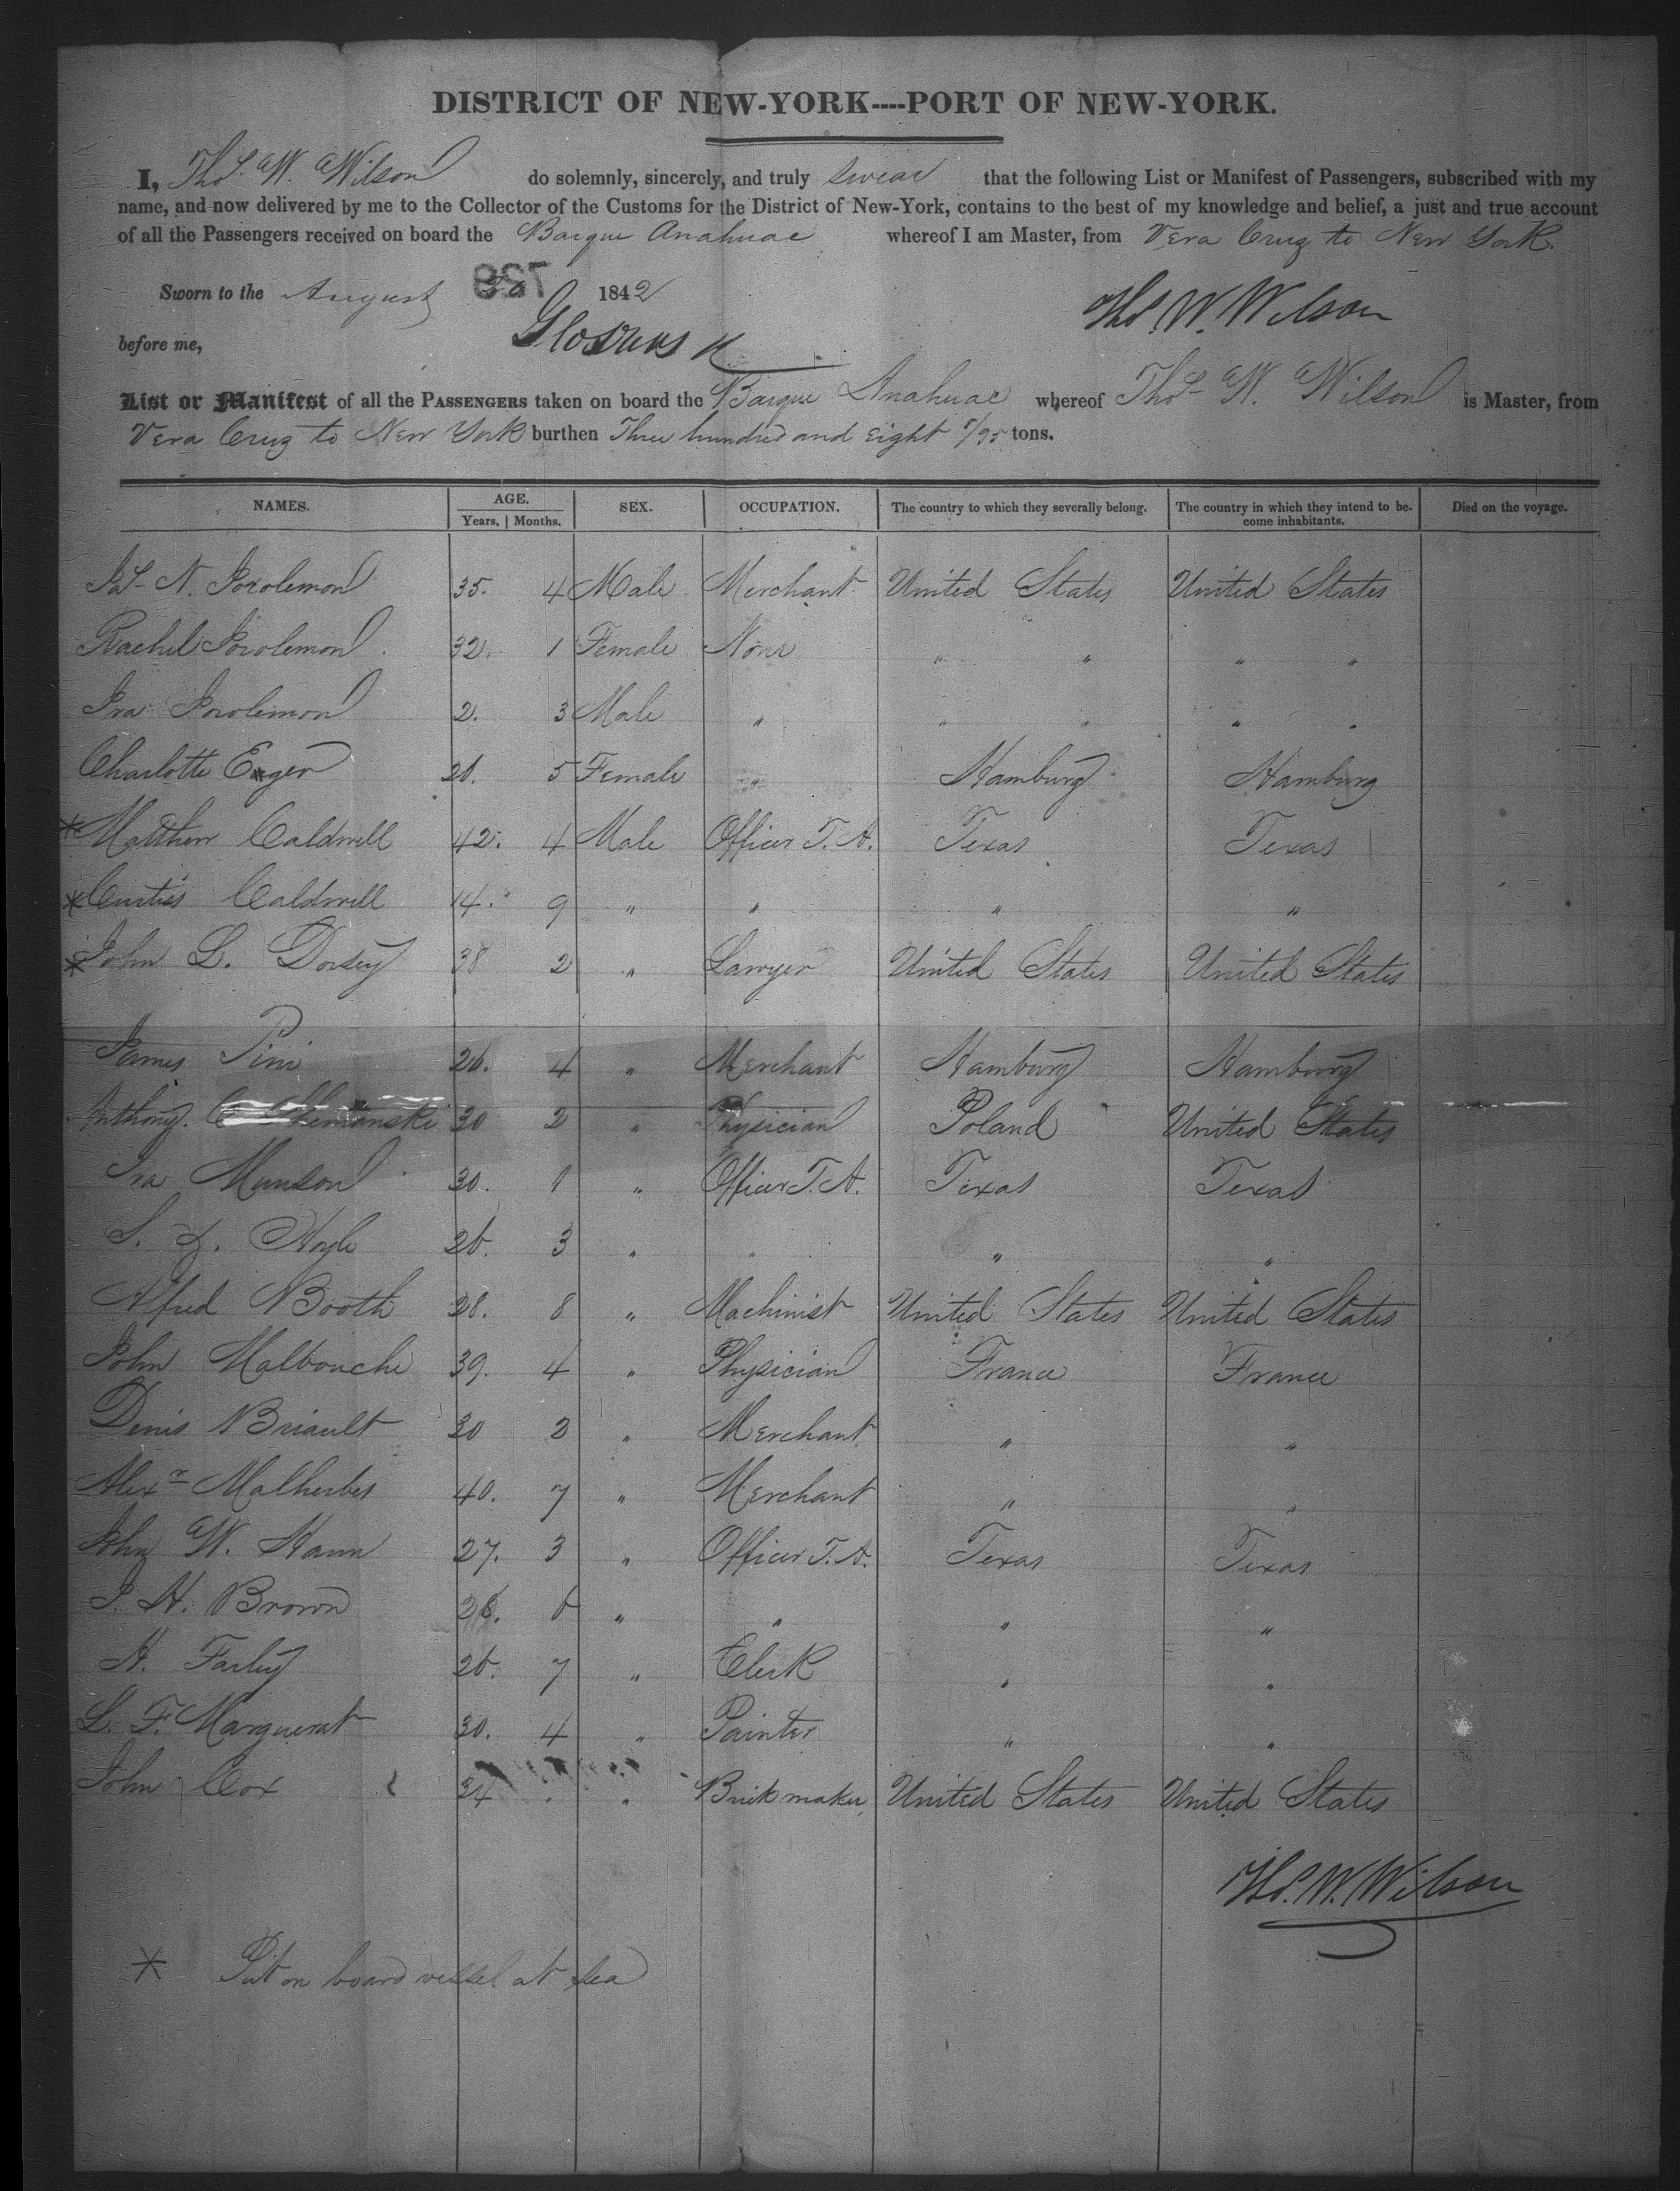 DISTRICT OF NEW-YORK----PORT OF NEW-YORK.
I, Thos. W. Wilson do solemnly, sincerely, and truly swear that the following List or Manifest of Passengers, subscribed with my
name, and now delivered by me to the Collector of the Customs for the District of New-York, contains to the best of my knowledge and belief, a just and true account
of all the Passengers received on board the Barque Anahuac whereof I am Master, from Vera Cruz to New York.
Sworn to the August 1842
Tho. W. Wilson
before me,
List or Manifest of all the PASSENGERS taken on board the Barque Anahuac whereof Thos. W. Wilson is Master, from
Vera Cruz to New York burthen Three hundred and eight /95 tons.
NAMES. AGE. Years. Months. SEX. OCCUPATION. The country to which they severally belong. The country in which they intend to become inhabitants. Died on the voyage.
N. 35. 4 Male Merchant United States United States
Rachel 32. 1 Female None " " " "
Ira 2. 3 Male " " " " "
Charlotte 5 Female " Hamburg Hamburg
* Matthew Caldwell 42. 4 Male Officer T. A. Texas Texas
* Curtis Caldwell 14. 9 " " " "
* John L. Dorsey 38 2 " Lawyer United States United States
James Pini 26. 4 " Merchant Hamburg Hamburg
Anthony. 30 2 " Physician Poland United States
Ira Munson 30. 1 " Officer T. A. Texas Texas
S. Hoyle 26. 3 " " " "
Alfred Booth 28. 8 " Machinist United States United States
John Malbouche 39. 4 " Physician France France
Denis Briault 30 2 " Merchant " "
Alexr Malherbes 40. 7 " Merchant " "
John W. Hann 27. 3 " Officer T. A. Texas Texas
H. Brown 6 " " " "
H. Farley 26. 7 " Clerk " "
L. F. Marguerat 30. 4 " Painter " "
John Cox 34 " Brickmaker United States United States
Tho. W. Wilson
* Put on board vessel at sea